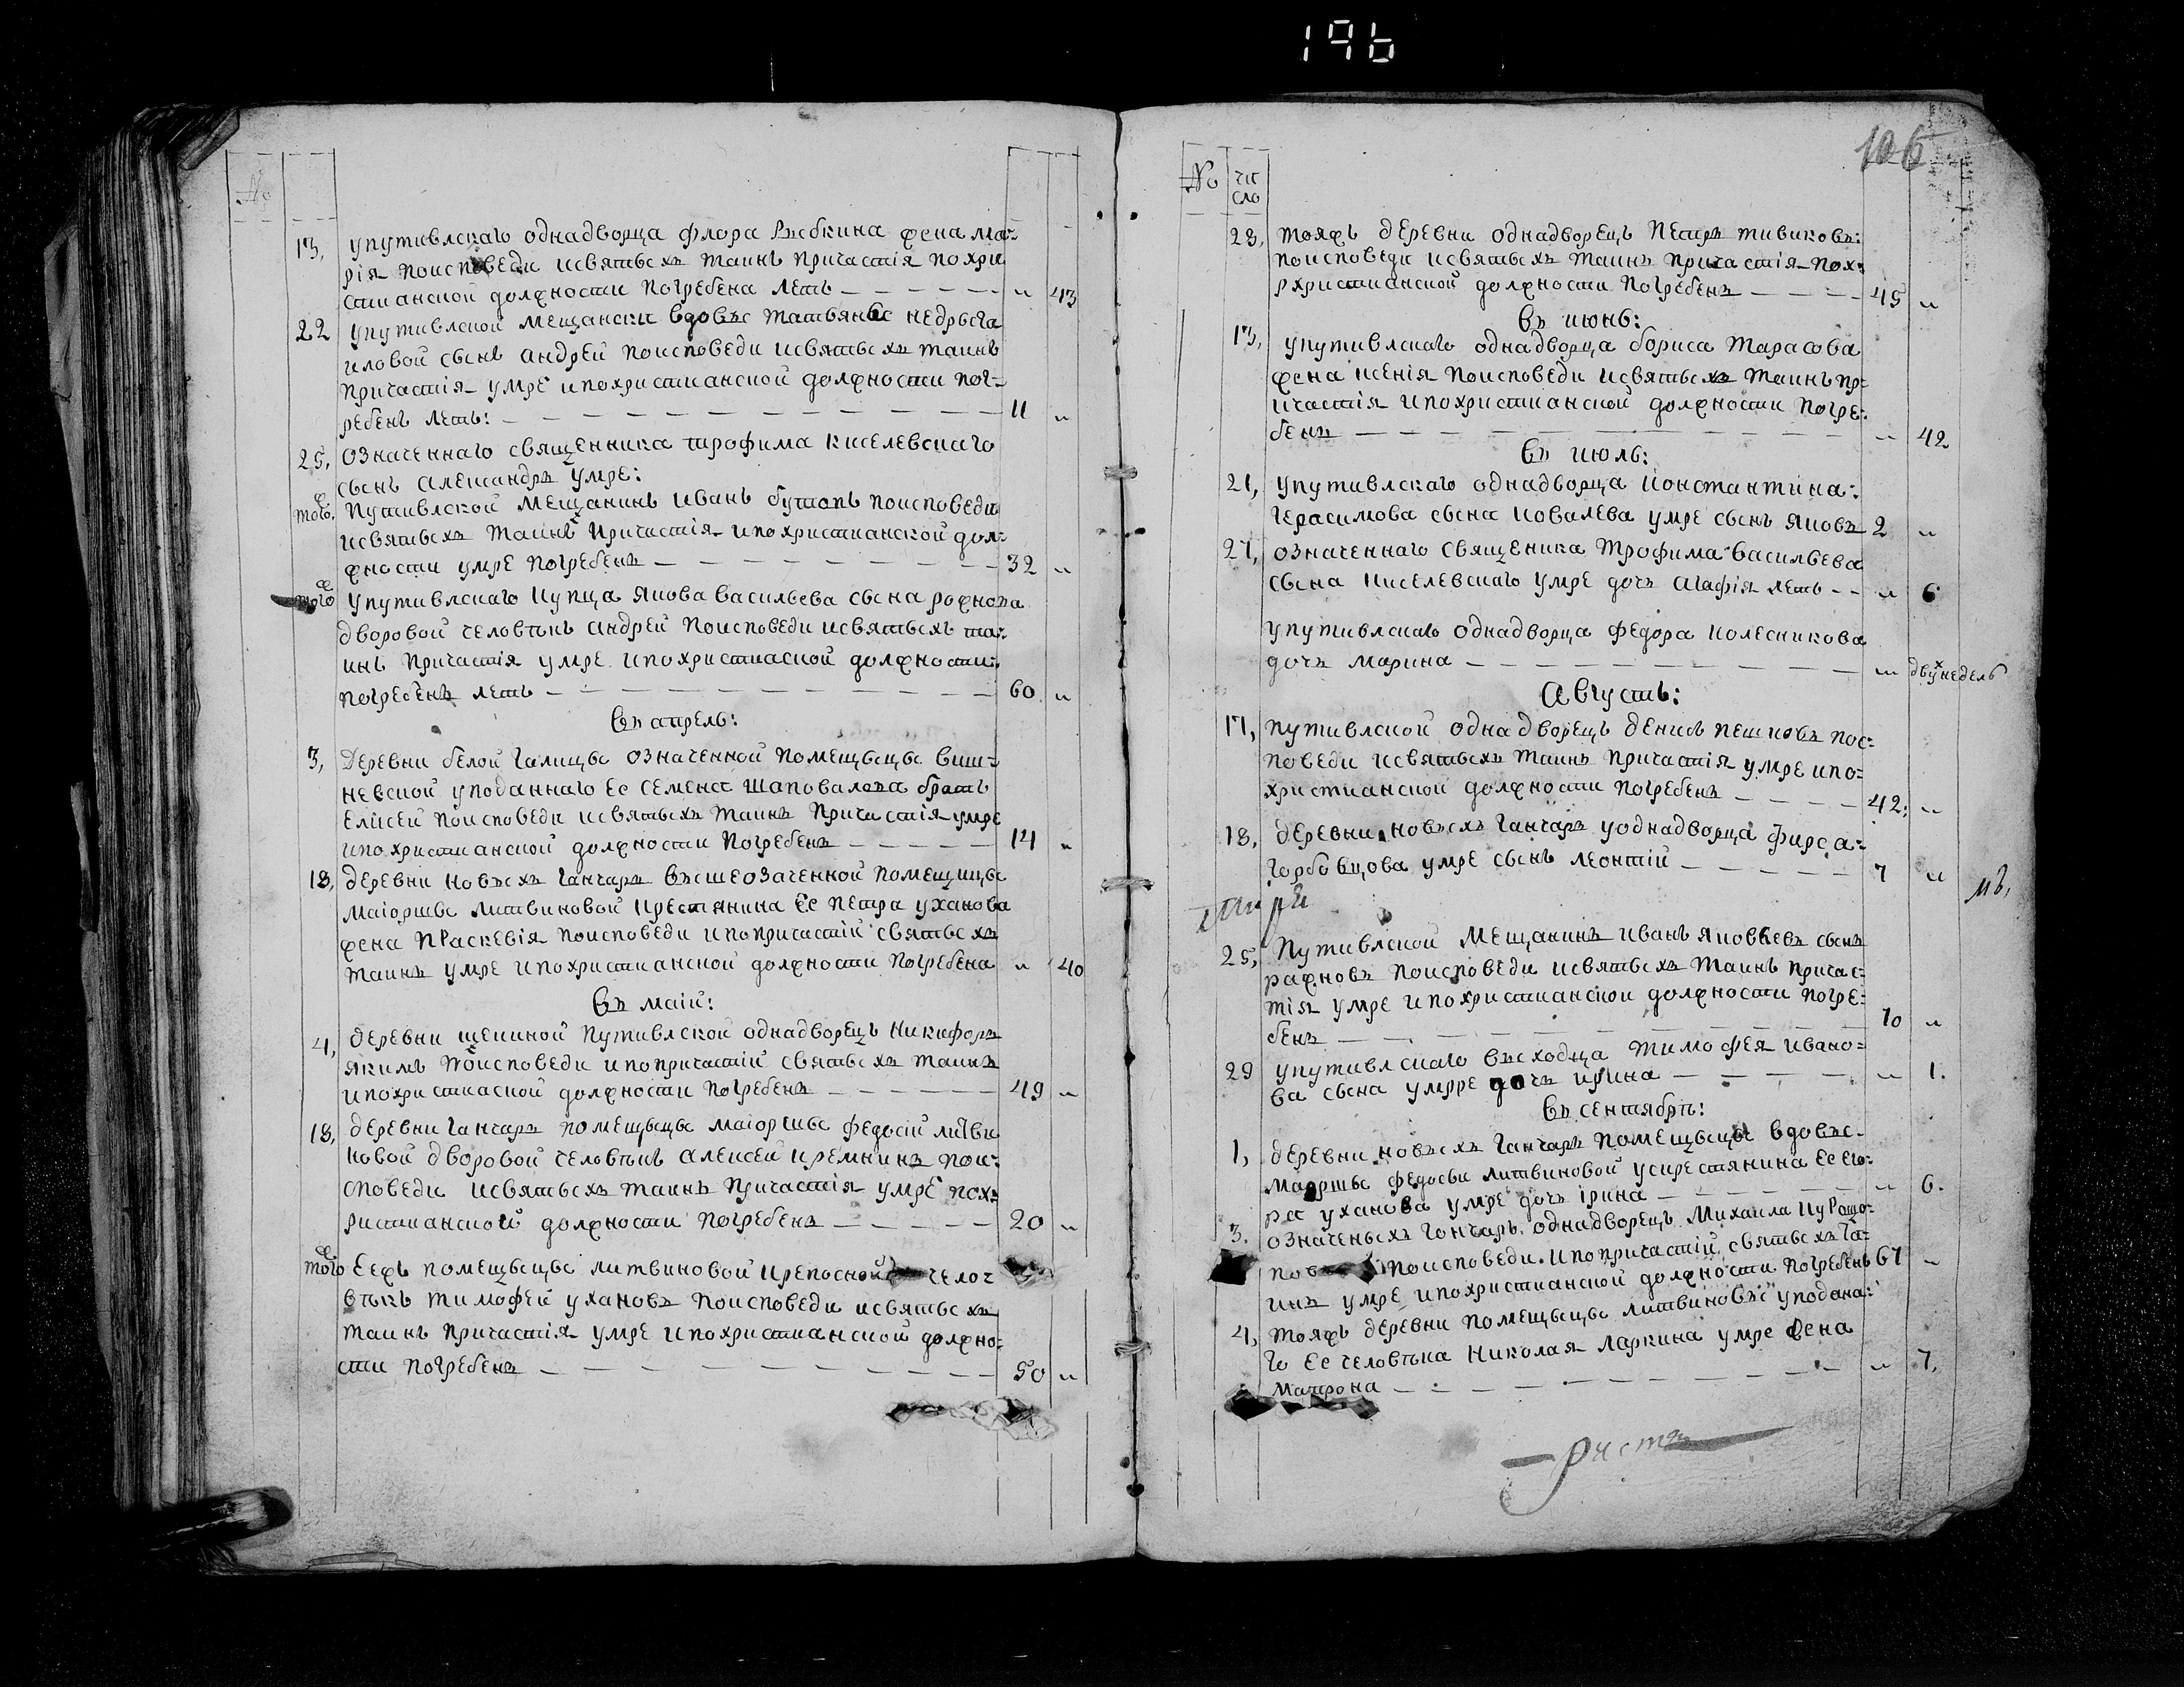 196
106
№
13, упутивлскаго однадворца Флора Рыбкина жена ма:
рія поисповеди исвятыхъ таинъ причастія похри
стианской должности погребена летъ — „ 43
22 упутивлской мещански вдовы татьяны недрыга
иловой сынъ андрей поисповеди исвятыхъ таинъ
причастія умре ипохристианской должности пог-
ребенъ летъ: — 11 „
25, означеннаго священника трофима киселевскаго
сынъ александръ умре:
тогож. Путивлской мещанинъ иванъ поисповеди
исвятыхъ таинъ причастія ипохристианской дол-
жности умре погребенъ — 32 „
тогож упутивлскаго купца якова васильева сына рожнова
дворовой человѣкъ андрей поисповеди исвятыхъ та:
инъ причастія умре ипохристиаской должности:
погребенъ летъ — 60. „
въ апрель:
3, Деревни белой галицы означенной помещыцы виш-
невской уподаннаго ее семена шаповалова братъ
елісей поисповеди исвятыхъ таинъ причастія умре
ипохристианской должности погребенъ — 14 „
18, деревни новыхъ ганчаръ вышеозаченной помещицы
маіоршы литвиновой крестянина ее петра уханова
жена праскевія поисповеди ипопричастій святыхъ
таинъ умре ипохристианской должности погребена „ 40
въ маій:
4, деревни щекиной путивлской однадворецъ никифоръ
якимъ поисповеди ипопричастій святыхъ таинъ
ипохристиаской должности погребенъ — 49 „
18, деревни ганчаръ помещыцы маіоршы федосій литви
новой дворовой человѣкъ алексей кремнинъ поис:
споведи исвятыхъ таинъ причастія умре пох:
ристианской должности погребенъ — 20 „
тогож еежъ помещыцы литвиновой крепосной челов
вѣкъ тимофей ухановъ поисповеди исвятыхъ
таинъ причастія умре ипохристианской должно:
сти погребенъ — 50 „
№ чи
сло
28, тояжъ деревни однадворецъ петръ тивиковъ:
поисповеди исвятыхъ таинъ причастія пох:
рхристианской должности погребенъ — 45 „
въ июнь:
13, упутивлскаго однадворца бориса тарасова
жена ксенія поисповеди исвятыхъ таинъ пр:
ичастія ипохристианской должности погре:
бенъ — „ 42
въ июль:
21, упутивлскаго однадворца константина:
герасимова сына ковалева умре сынъ яковъ 2 „
27, означеннаго священика трофима васильева
сына киселевскаго умре дочь агафія летъ — „ 6
упутивлскаго однадворца федора колесникова
дочъ марина — „ двухнедель
августъ:
17, путивлской однадворецъ денисъ пешковъ пос:
поведи исвятыхъ таинъ причастія умре ипо:
христианской должности погребенъ — 42: „
18, деревни новыхъ ганчаръ уоднадворца фирса:
горбовцова умре сынъ леонтій — 7 „
25, Путивлской мещанинъ иванъ яковлевъ сынъ
ражновъ поисповеди исвятыхъ таинъ причас:
тія умре ипохристианской должности погре:
бенъ — 70 „
29 упутивлскаго выходца тимофея ивано:
ва сына умрре дочъ ирина — „ 1.
въ сентябрѣ:
1, деревни новыхъ ганчаръ помещыцы вдовы-
маоршы федосьи литвиновой укирестянина ее его:
ра уханова умре дочь ірина — „ 6.
3. означеныхъ ганчаръ однадворецъ михаила
поисповеди. ипопричастій святыхъ та:
инъ умре ипохристианской должности погребенъ 67 „
4, тояжъ деревни помещыцы литвиновы уподана:
го ее человѣка николая ларкина умре жена
матрона — „ 7.